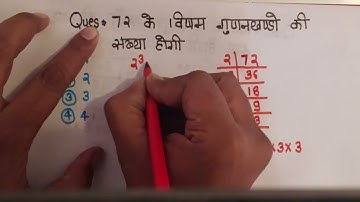 Ques: 72 के विषम गुणनखण्डो की
संख्या होगी
2³
② 2
③ 3
④ 4
2 | 72
36
18
9
3
× 3 × 3